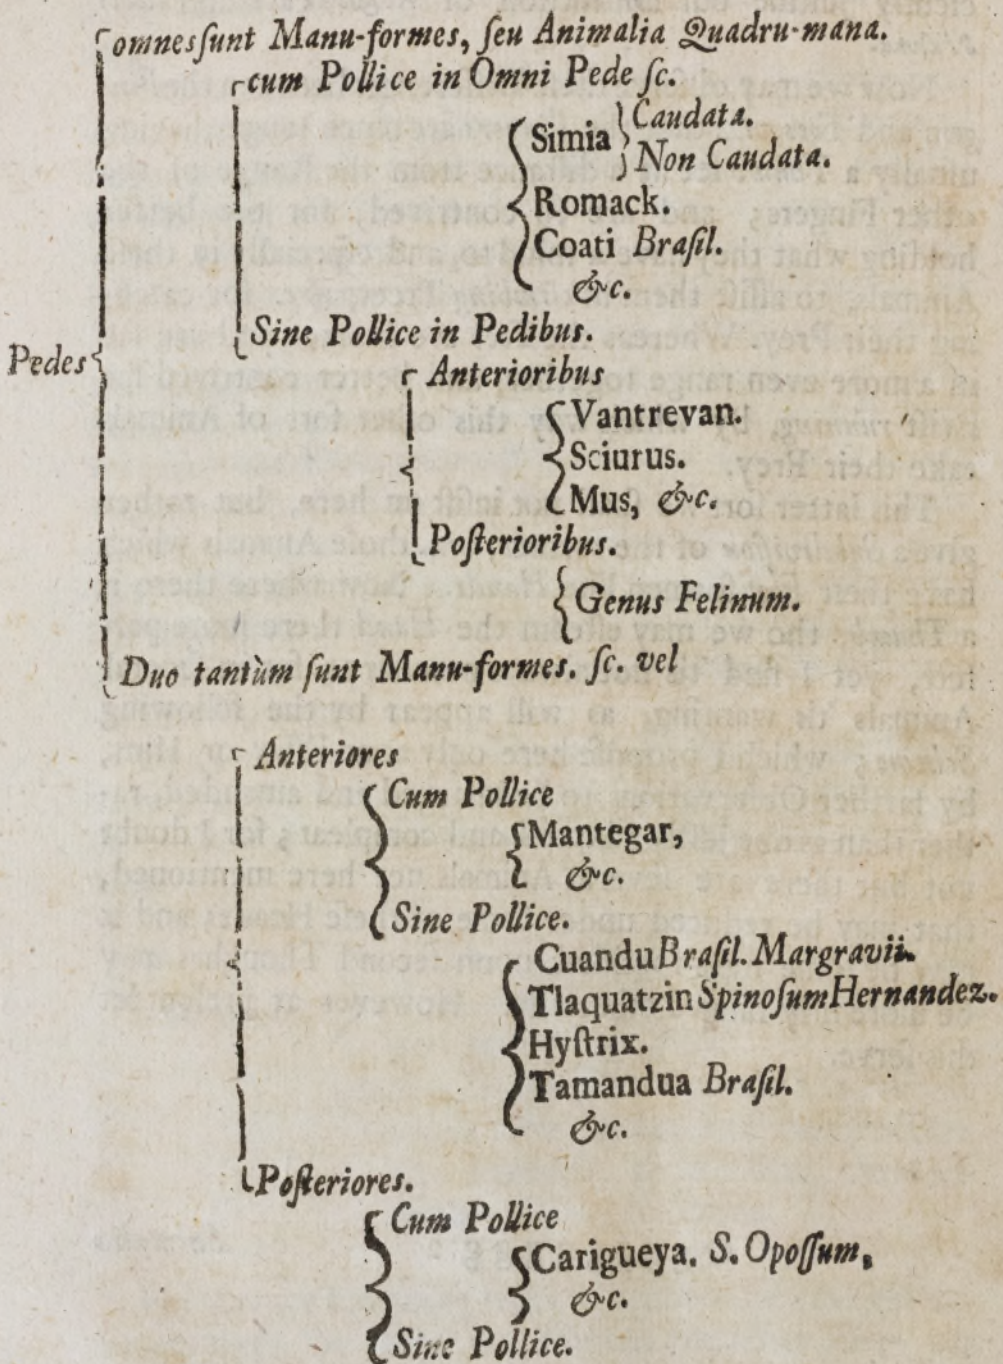 omnes ſunt Manu-formes, ſeu Animalia Quadru-mana.
cum Pollice in Omni Pede ſc.
Simia
Caudata.
Non Caudata.
Romack.
Coati Braſil.
&c.
Sine Pollice in Pedibus.
Pedes
Anterioribus
Vantrevan.
Sciurus.
Mus, &c.
Poſterioribus.
Genus Felinum.
Duo tantùm ſunt Manu-formes. ſc. vel
Anteriores
Cum Pollice
Mantegar,
&c.
Sine Pollice.
Cuandu Braſil. Margravii.
Tlaquatzin Spinoſum Hernandez.
Hyſtrix.
Tamandua Braſil.
&c.
Poſteriores.
Cum Pollice
Carigueya. S. Opoſſum,
&c.
Sine Pollice.